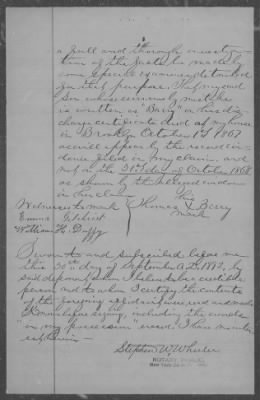 a full and thorough investiga-
tion of the facts be made by
some special examiner detailed
for that purpose. That my said
son whose name by mistake
is written as "Barry" on his dis-
charge certificate died at my house
in Brooklyn October 1st 1867
as will appear by the record evi-
dence filed in my claim, and
not on the 31st day of October 1868
as shown by the alleged
Witnesses to mark
his
Thomas X Berry
mark
Emma Gilchrist
William H. Duffy
Sworn to and subscribed before me
this 30th day of September A.D. 1892, by
said deponent whom I believe to be a credible
person and to whom I certify the contents
of the foregoing affidavit were read and made
known before signing, including the words
"in my possession" erased. I have no inter-
est herein
Stephen W. Wheeler
NOTARY PUBLIC,
New York